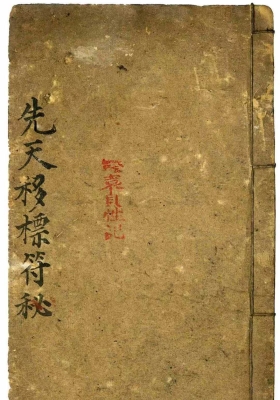 先天移標符秘